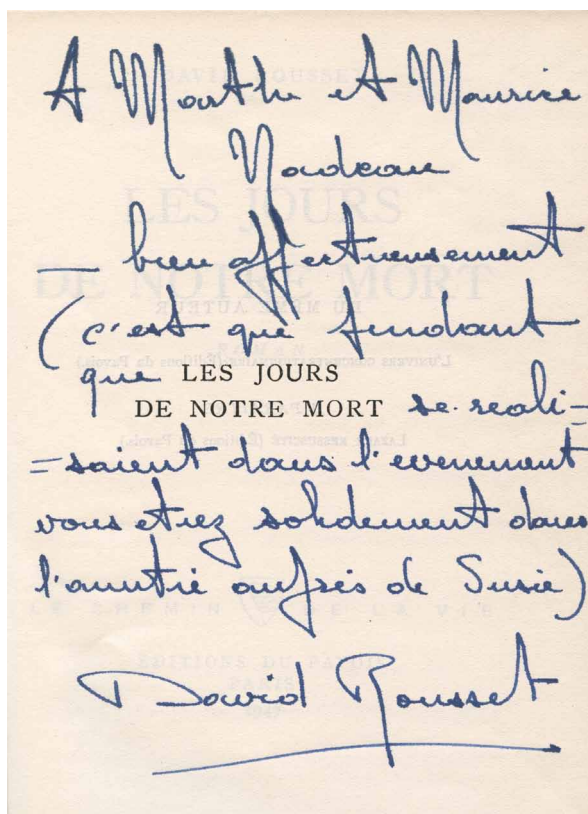 A Marthe et Maurice
Nadeau
— bien affectueusement
(c'est que pendant
que LES JOURS
DE NOTRE MORT se reali-
=saient dans l'evenement
vous etiez solidement dans
l'amitié auprès de Susie)
David Rousset